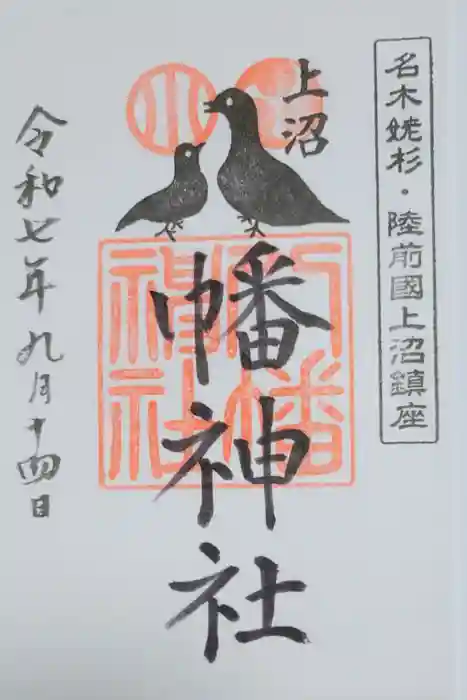 名木姥杉・陸前國上沼鎮座
上沼
幡神社
八幡神社
令和七年九月十四日